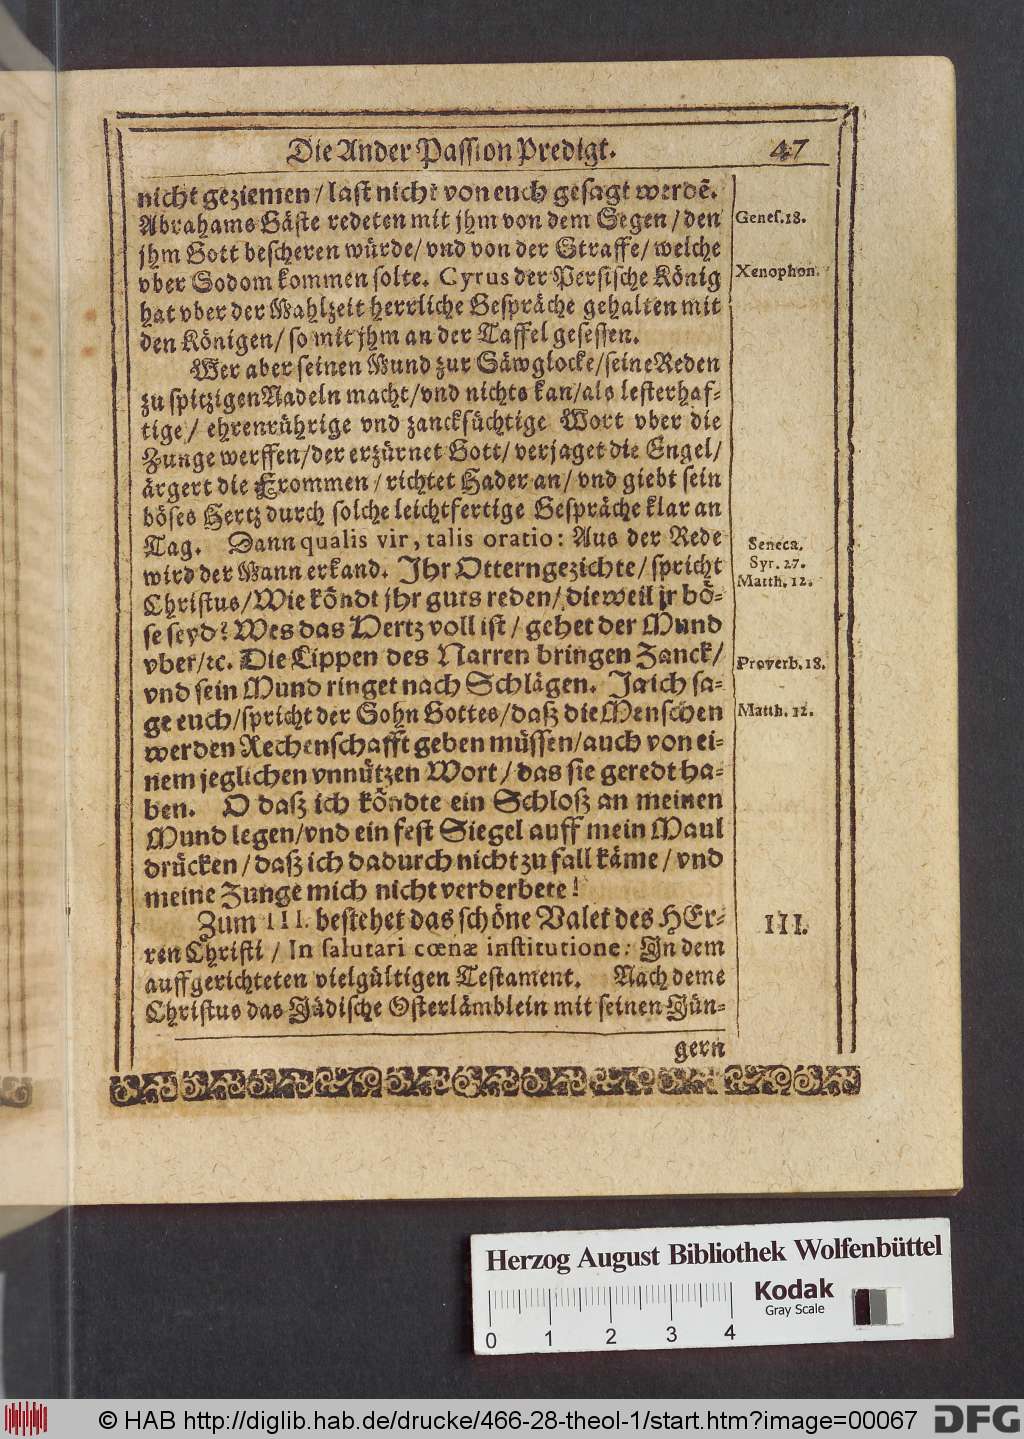 Die Ander Passion Predigt. 47
nicht geziemen / last nicht von euch gesagt werdē.
Abrahams Gäste redeten mit jhm von dem Segen / den
jhm Gott bescheren würde / vnd von der Straffe / welche
vber Sodom kommen solte. Cyrus der Persische König
hat vber der Mahlzeit herrliche Gespräche gehalten mit
den Königen / so mit jhm an der Taffel gesessen.
Wer aber seinen Mund zur Säwglocke / seine Reden
zu spitzigen Nadeln macht / vnd nichts kan / als lesterhaf-
tige / ehrenrührige vnd zancksüchtige Wort vber die
Zunge werffen / der erzürnet Gott / verjaget die Engel /
ärgert die Frommen / richtet Hader an / vnd giebt sein
böses Hertz durch solche leichtfertige Gespräche klar an
Tag. Dann qualis vir, talis oratio: Aus der Rede
wird der Mann erkand. Ihr Otterngezichte / spricht
Christus / Wie köndt jhr guts reden / dieweil jr bö-
se seyd? Wes das Hertz voll ist / gehet der Mund
vber / ꝛc. Die Lippen des Narren bringen Zanck /
vnd sein Mund ringet nach Schlägen. Ja ich sa-
ge euch / spricht der Sohn Gottes / daß die Menschen
werden Rechenschafft geben müssen / auch von ei-
nem jeglichen vnnützen Wort / das sie geredt ha-
ben. O daß ich köndte ein Schloß an meinen
Mund legen / vnd ein fest Siegel auff mein Maul
drücken / daß ich dadurch nicht zu fall käme / vnd
meine Zunge mich nicht verderbete!
Zum III. bestehet das schöne Valet des HEr-
ren Christi / In salutari cœnæ institutione: In dem
auffgerichteten vielgültigen Testament. Nach deme
Christus das Jüdische Osterlämblein mit seinen Jün-
gern
Genes. 18.
Xenophon.
Seneca.
Syr. 27.
Matth. 12.
Proverb. 18.
Matth. 12.
III.
Herzog August Bibliothek Wolfenbüttel
Kodak
Gray Scale
0 1 2 3 4
© HAB http://diglib.hab.de/drucke/466-28-theol-1/start.htm?image=00067 DFG